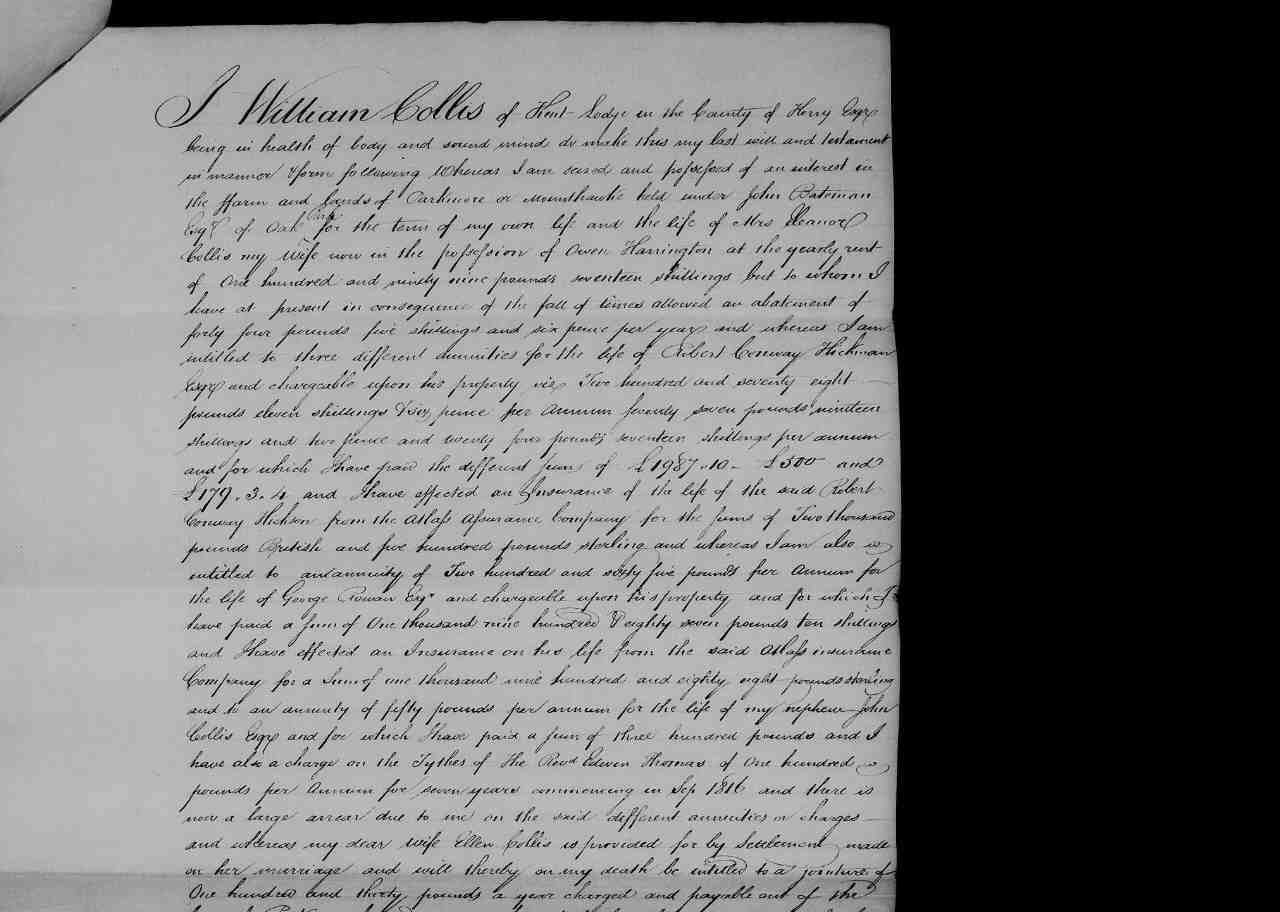 I William Collis of Kent Lodge in the County of Kerry Esqre
being in health of body and sound mind do make this my last will and testament
in manner & form following Whereas I am seized and possessed of an interest in
the ffarm and Lands of Carkmore or Mounthawke held under John Bateman
Esqr of Oak Park for the term of my own life and the life of Mrs Eleanor
Collis my Wife now in the possession of Owen Harrington at the yearly rent
of One hundred and ninety nine pounds seventeen shillings but to whom I
have at present in consequence of the fall of times allowed an abatement of
forty four pounds five shillings and six pence per year and whereas I am
intitled to three different annuities for the life of Robert Conway Hickman
Esqre and chargeable upon his property viz Two hundred and seventy eight
pounds eleven shillings & six pence per Annum seventy seven pounds nineteen
shillings and two pence and twenty four pounds seventeen shillings per annum
and for which I have paid the different sums of £1987.10 - £500 and
£179.3.4 and I have effected an Insurance of the life of the said Robert
Conway Hickson from the Atlass Assurance Company for the Sums of Two thousand
pounds British and five hundred pounds sterling and whereas I am also
intitled to an annuity of Two hundred and sixty five pounds per Annum for
the life of George Rowan Esqr and chargeable upon his property and for which I
have paid a Sum of One thousand nine hundred & eighty seven pounds ten shillings
and I have effected an Insurance on his life from the said Atlass insurance
Company for a Sum of one thousand nine hundred and eighty eight pounds sterling
and to an annuity of fifty pounds per annum for the life of my nephew John
Collis Esqre and for which I have paid a Sum of three hundred pounds and I
have also a charge on the Tythes of the Revd Edwin Thomas of One hundred
pounds per Annum for seven years commencing in Sep 1816 and there is
now a large arrear due to me on the said different annuities or charges
and whereas my dear wife Ellen Collis is provided for by Settlement made
on her marriage and will thereby on my death be intitled to a jointure of
One hundred and thirty pounds a year charged and payable out of the